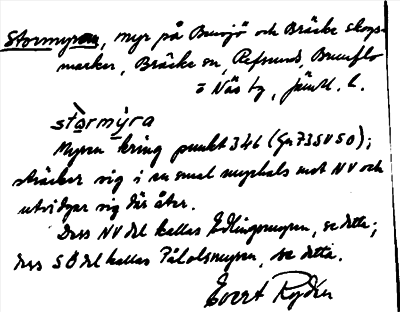 Stormyran, myr på Bensjö och Bräcke skogs-
marker, Bräcke sn, Refsund, Brunflo
o Näs tg, Jämtl. l.
stòrmýra
Myren kring punkt 346 (Gn 735 V SO);
sträcker sig i en smal myrhals mot NV och
utvidgar sig där åter.
Dess NV del kallas Edlingsmyren, se detta;
dess SÖ del kallas Pålolsmyren, se detta.
Evert Rydén